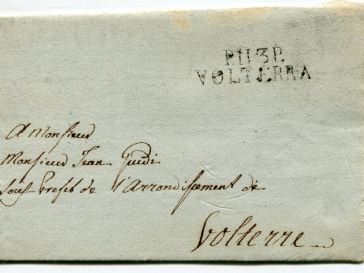 P.113.P.
VOLTERRA
A Monsieur
Monsieur Jean Guidi
Souf Prefet de l'Arrondissement de
Volterre